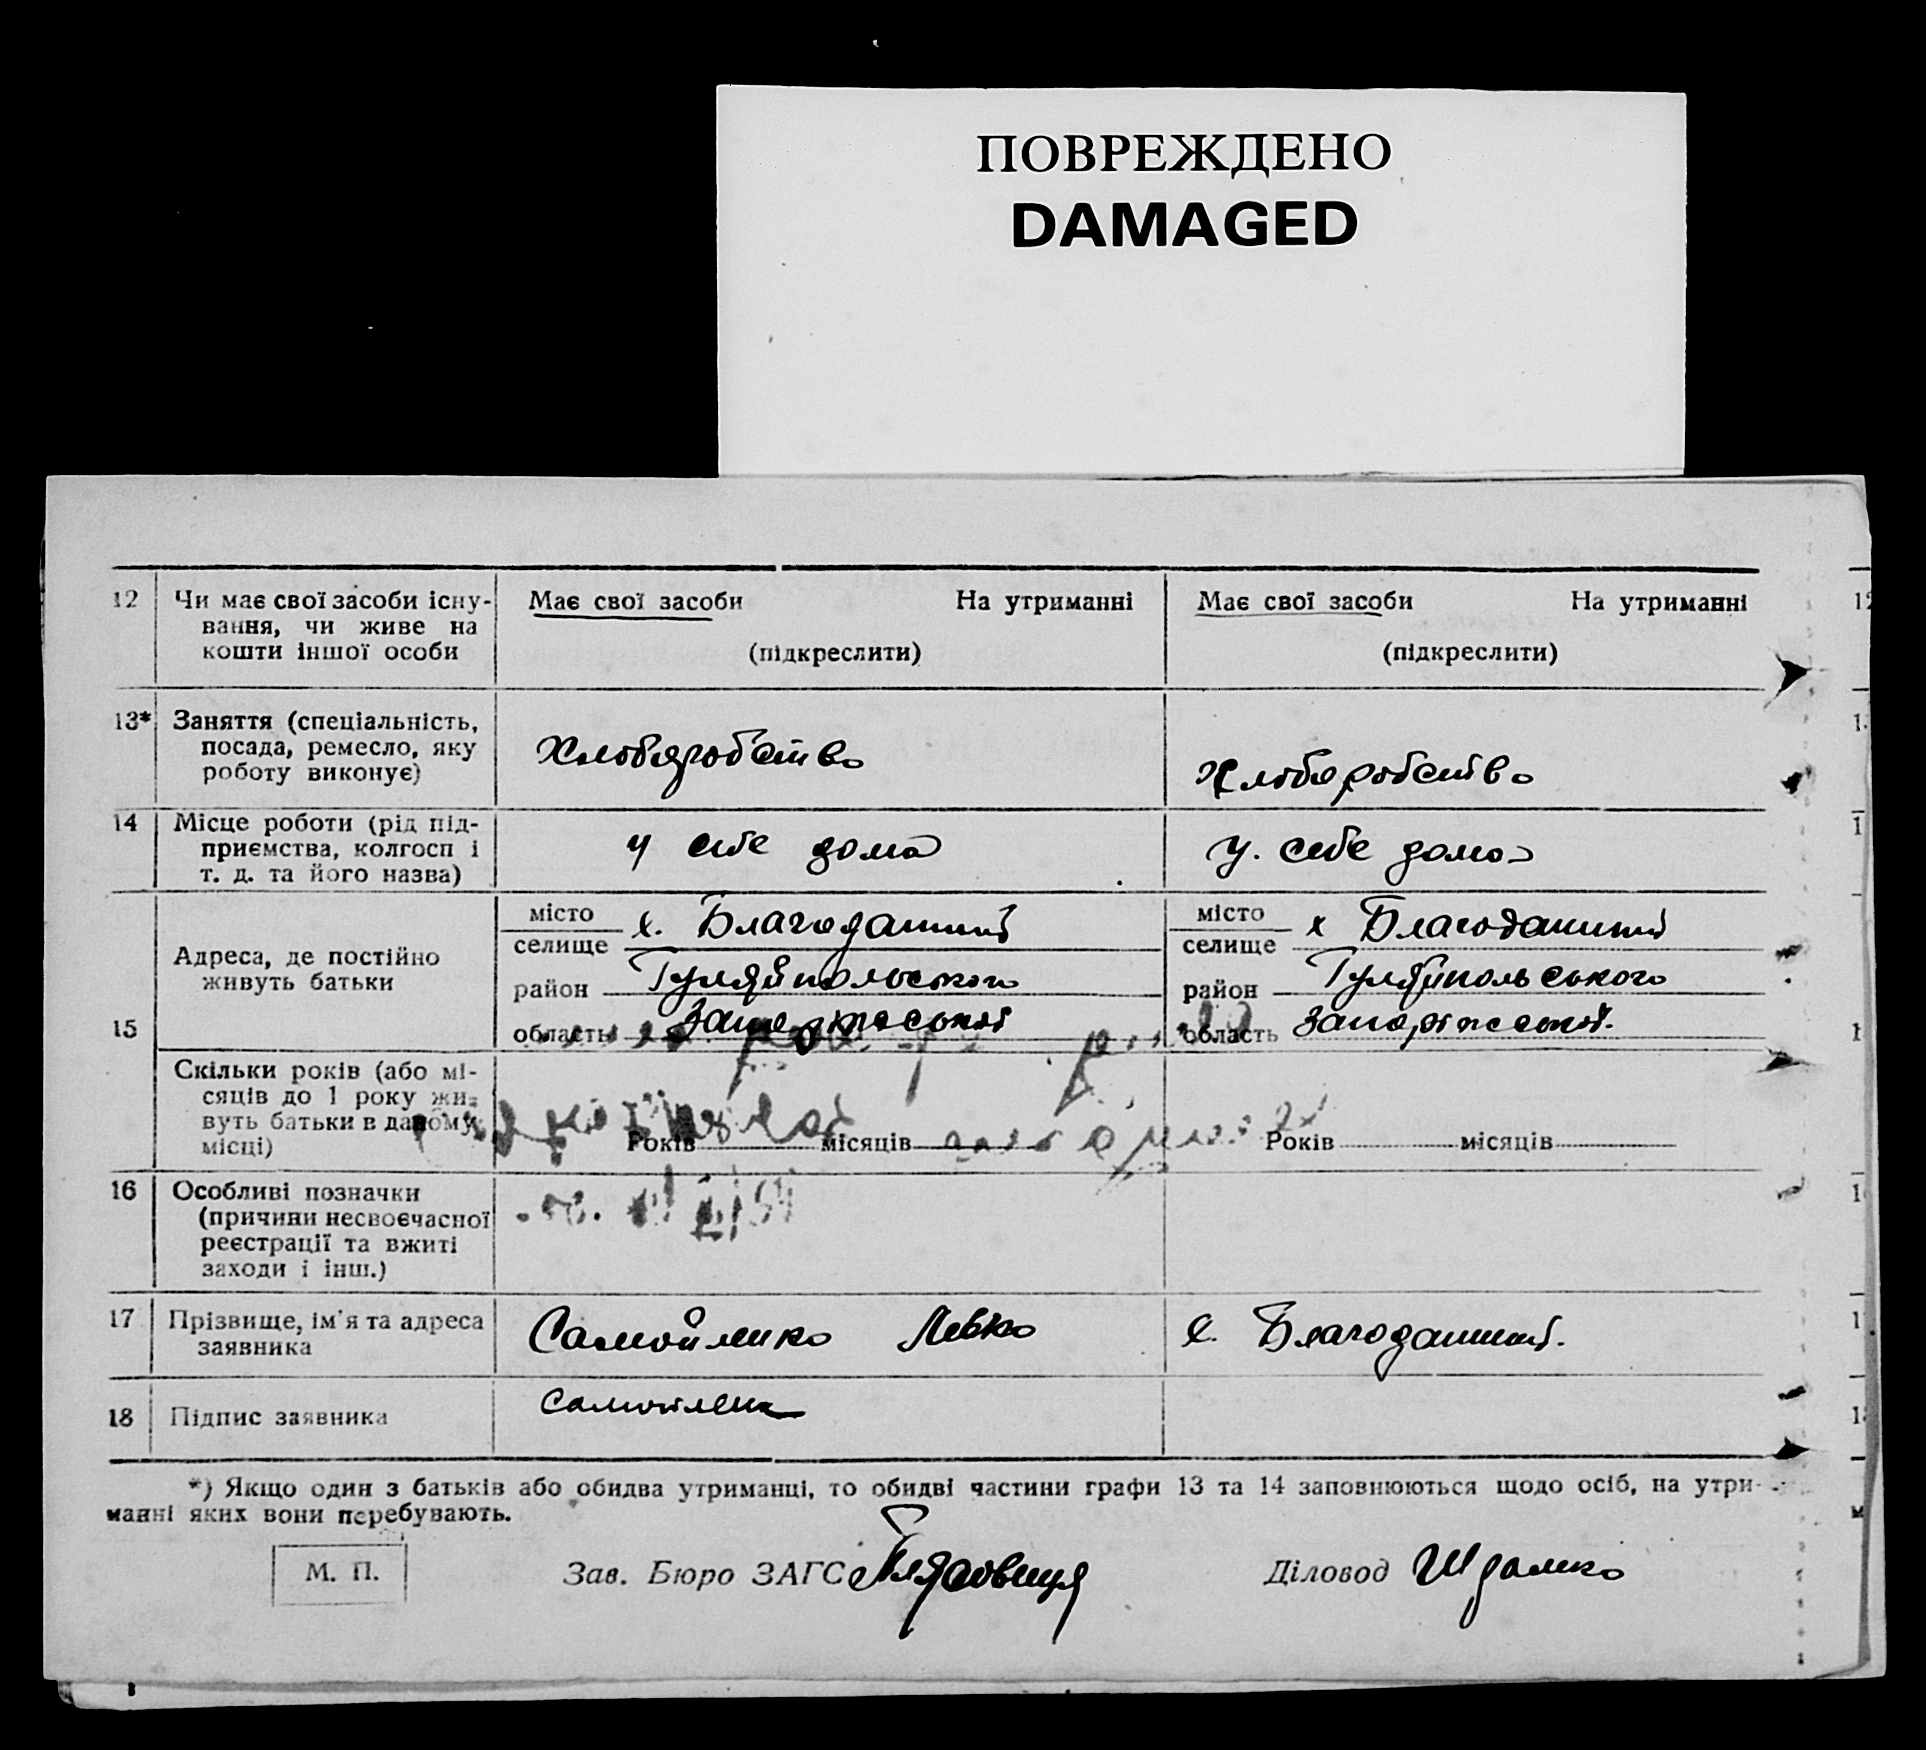 ПОВРЕЖДЕНО
DAMAGED
12 Чи має свої засоби існу- Має свої засоби На утриманні Має свої засоби На утриманні
вання, чи живе на
кошти іншої особи (підкреслити) (підкреслити)
13* Заняття (спеціальність,
посада, ремесло, яку Хлобяробство Хлоберобство
роботу виконує)
14 Місце роботи (рід під-
приємства, колгосп і у себе дома у. себе дома
т. д. та його назва)
місто х. Благодатний місто х Благодатний
селище селище
Адреса, де постійно
живуть батьки район Гуляйпольського район Гуляйпольського
15 область Запорізької область Запорізької.
Скільки років (або мі-
сяців до 1 року жи-
вуть батьки в даному Років місяців Років місяців
місці)
16 Особливі позначки
(причини несвоєчасної
реєстрації та вжиті
заходи і інш.)
17 Прізвище, ім'я та адреса Самойленко Левко х. Благодатний.
заявника
18 Підпис заявника Самойленк
*) Якщо один з батьків або обидва утриманці, то обидві частини графи 13 та 14 заповнюються щодо осіб, на утри-
манні яких вони перебувають.
М. П. Зав. Бюро ЗАГС Діловод